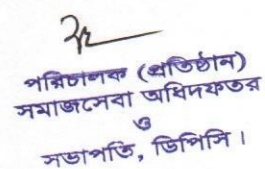 পরিচালক (প্রতিষ্ঠান)
সমাজসেবা অধিদফতর
ও
সভাপতি, ডিপিসি।